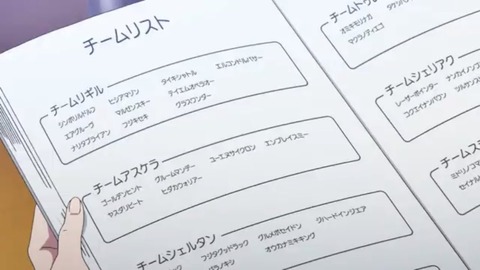 チームリスト
チームリギル
シンボリルドルフ ヒシアマゾン タイキシャトル エルコンドルパサー
エアグルーヴ マルゼンスキー テイエムオペラオー
ナリタブライアン フジキセキ グラスワンダー
チームアスケラ
ゴールデンヒント グルームマンデー ユーエヌサイクロン エンブレイスミー
ヤスダリピート ヒダカフォリアー
チームシェルタン
フジタグッドラック グルメポセイドン リハードインジェア
オウカナミキキング
チームトゥ
オミキモリナガ
マクランティエゴ
チームシェリアク
レーザーポインター ナンカイノソ
コクエイナンバワン
チームス
ミドリノコマ
セイナル